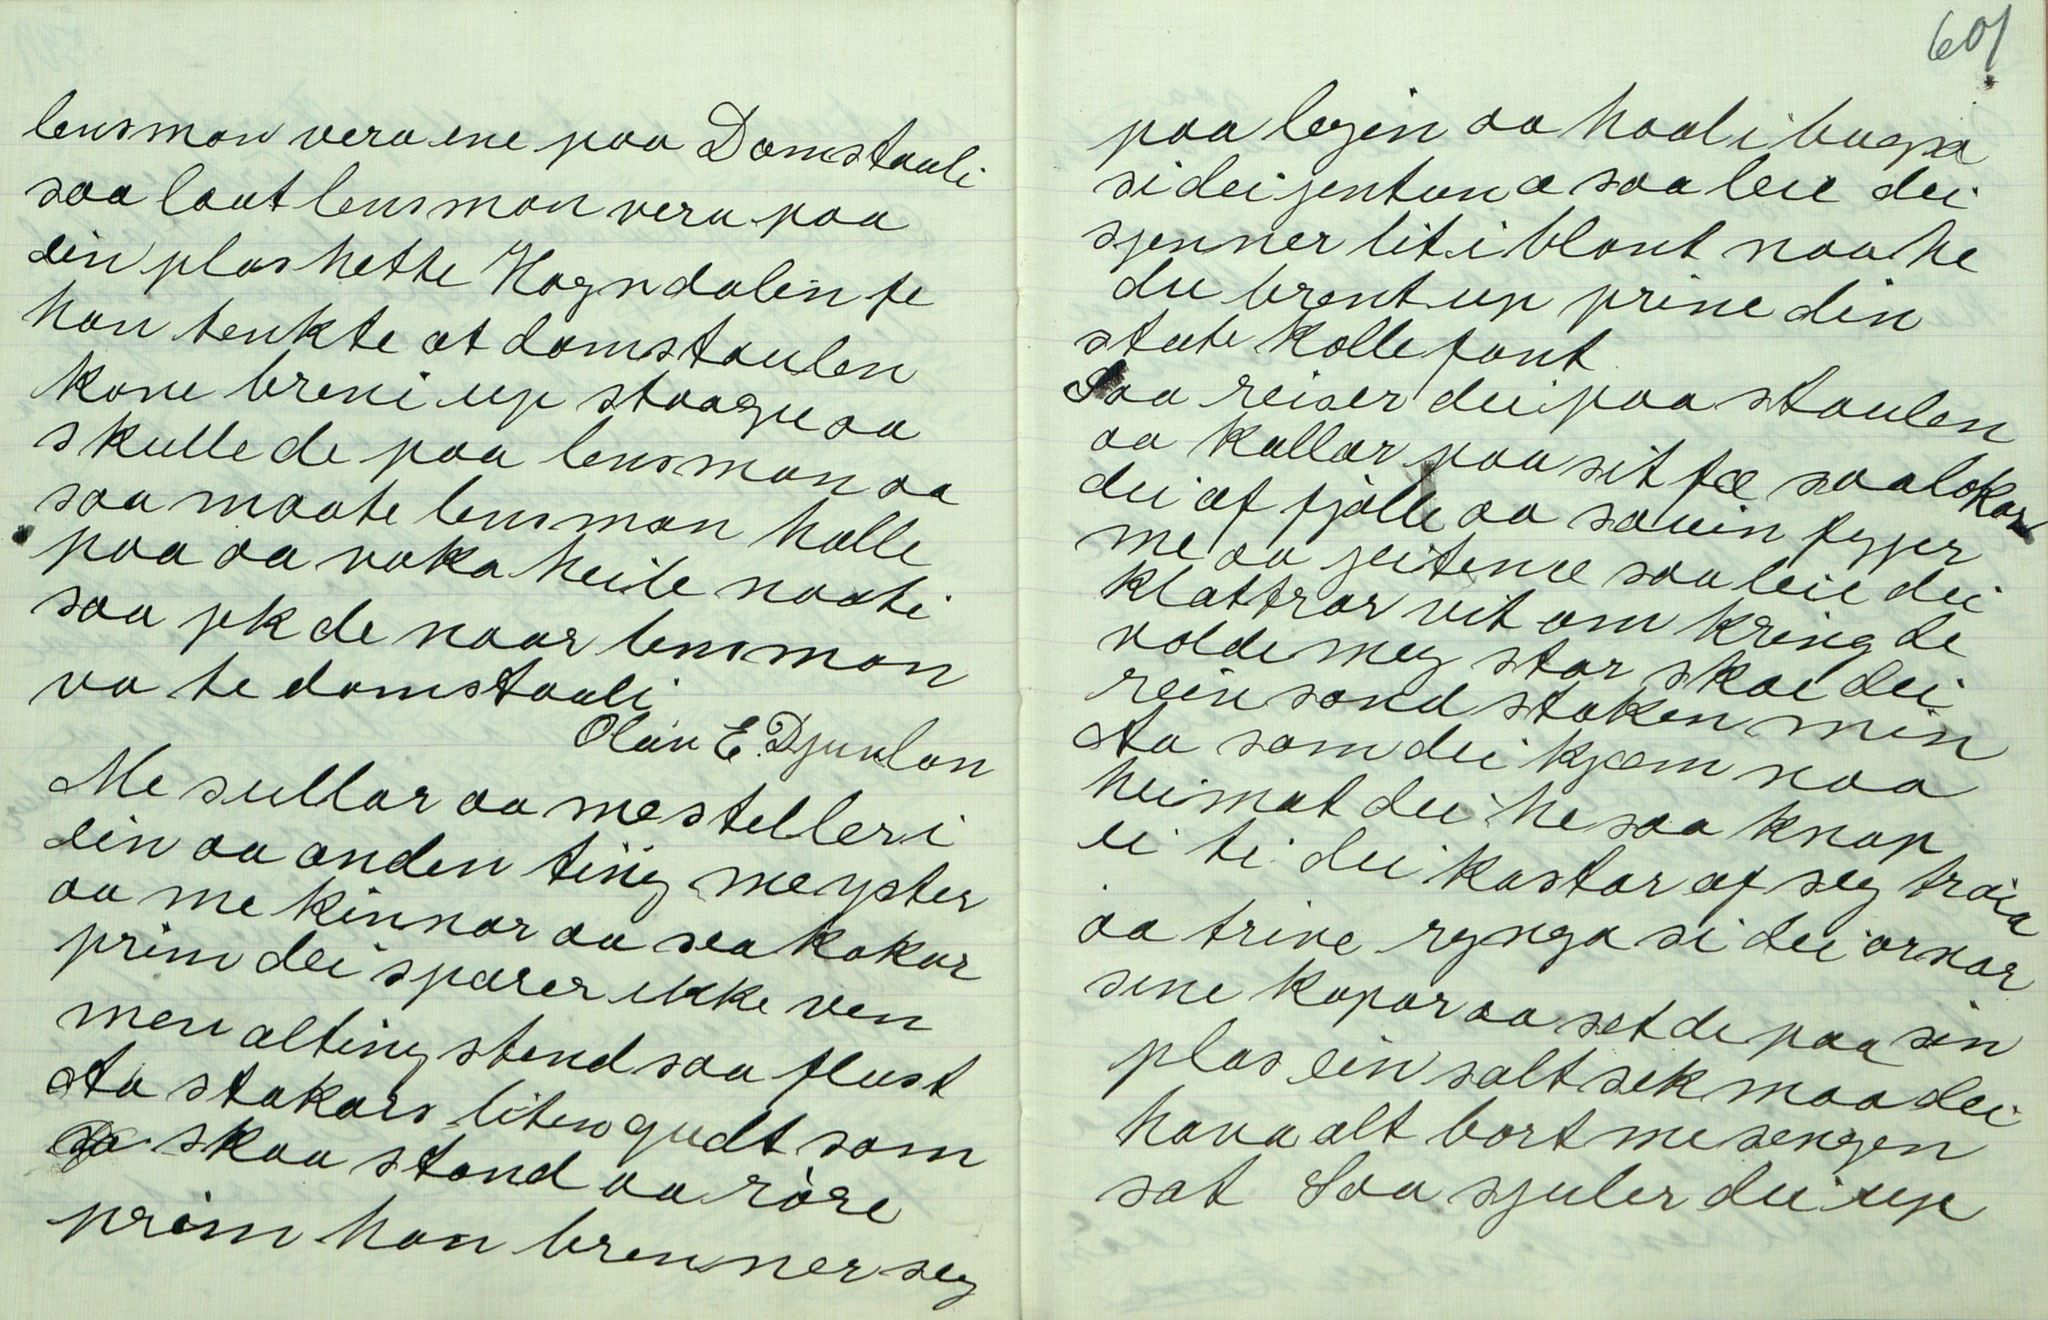 lensman vera ene paa Damstauli
saa laut lensman vera paa
ein plas hette Hogndalen fe
han tenkte at damstaulen
kane breni up staagu aa
skulle de paa lensman aa
saa maate lensman halle
paa aa vaka heile naati
saa jk de naar lensman
va te damstauli
Olav E. Djuvlan
Me sullar aa me steller i
ein aa anden ting me yster
aa me kinnar aa saa kokar
prim dei sparer ikke ven
men alting stend saa flust
Aa stakars liten gudt som
skaa stand aa röre
prim han brenner seg
601
paa legin aa haal i buqsa
si dei jentun æ saa leie dei
sjenner lit i blant naa he
du brent up prine din
stute kolle fant
Saa reiser dei paa staulen
aa kallar paa sit fæ saa lokar
dei af fjölle aa sauin fyjer
me aa jeitene saa leie dei
klattrar vit om kring de
volde meg star skae dei
rein sand staken min
Aa som dei kjæm naa
heimat dei he saa knap
ei ti dei kastar af seg tröia
aa trine rynga si dei ornar
sine kopar aa set de paa sin
plas ein salt sek maa dei
hava alt bort me sengen
sat Saa sjuler dei up